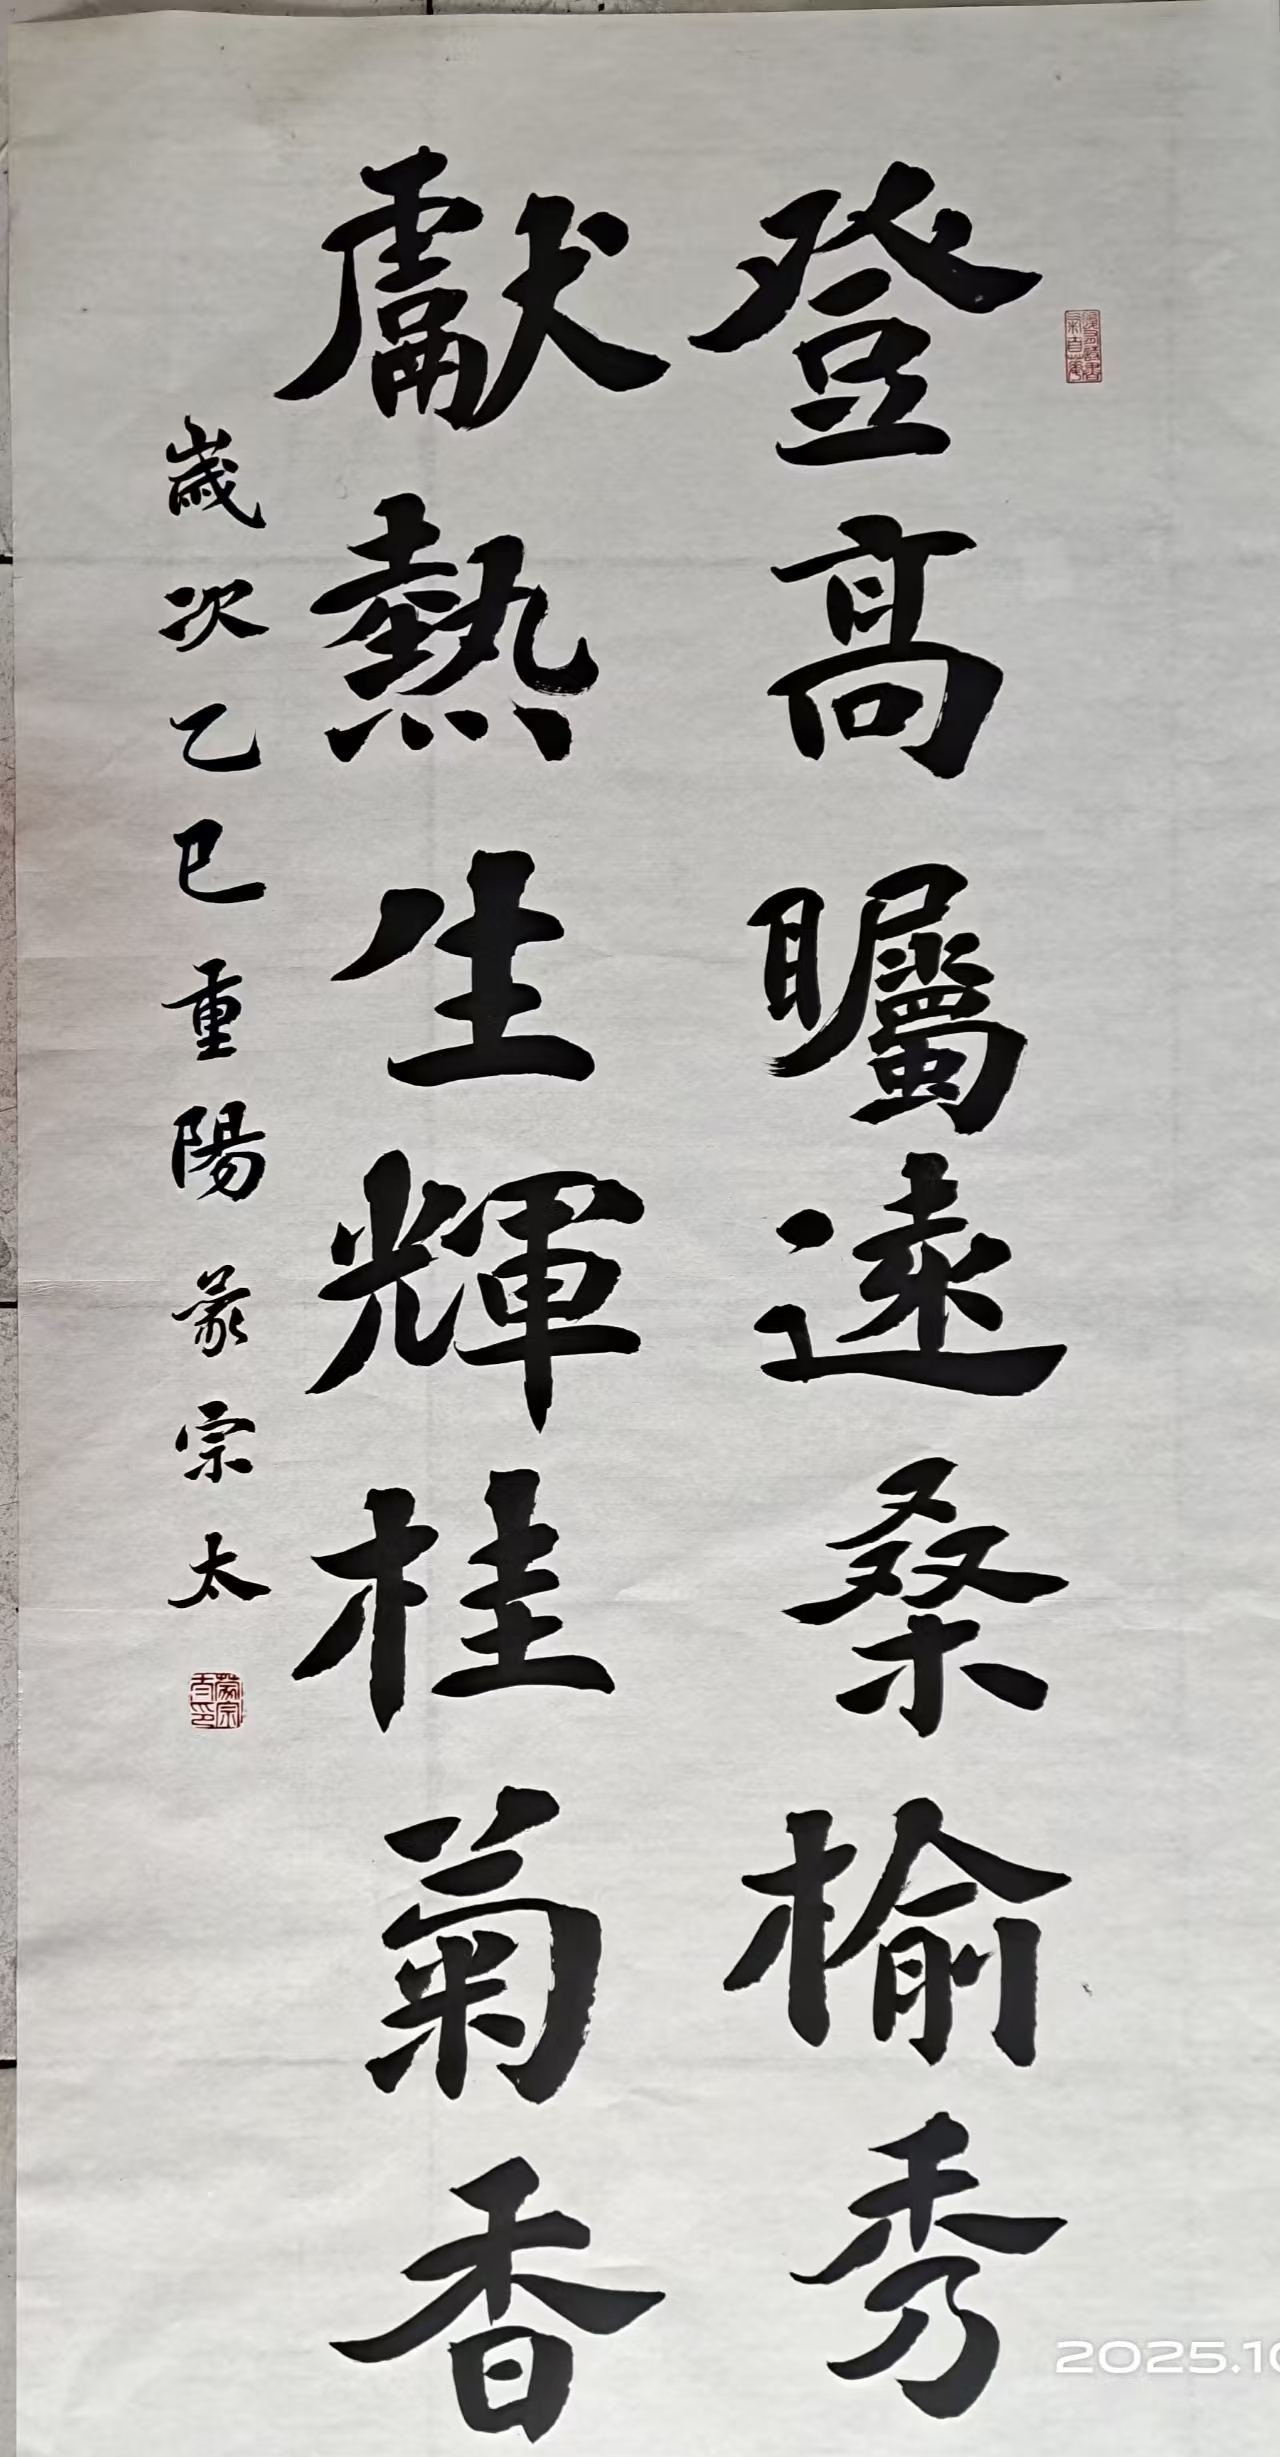 登高矚遠桑榆秀
獻熱生輝桂菊香
歲次乙巳重陽蒙宗太
蒙宗太印
2025.10